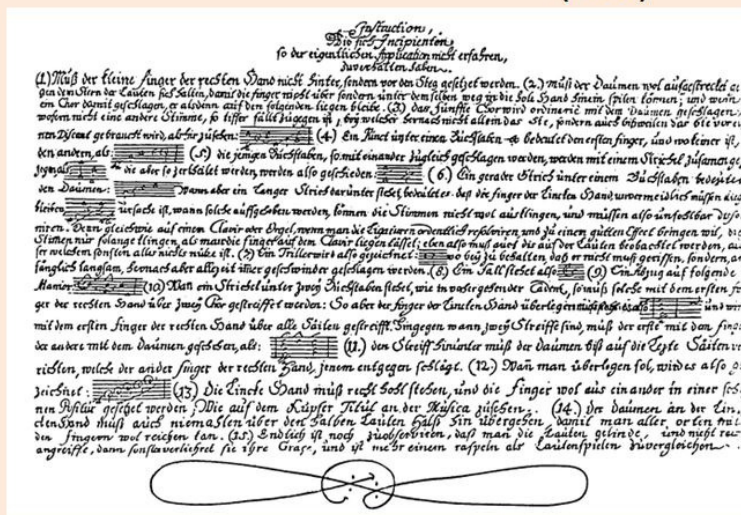 Instruction,
Wie sich Incipienten,
so der eigentlichen Application nicht erfahren,
zuverhalten haben.
(1.) Muß der kleine finger der rechten Hand nicht hinter, sondern vor den Steg gesetzet werden. (2.) muß der Daumen wol aufgestrecket
gen den Stern der Lauten sich halten, damit die finger nicht über sondern unter demselben weg in die hole Hand hinein spilen können; und wenn
ein Chor damit geschlagen, er alsdenn auf den folgenden liegen bleibe. (3.) das fünffte Chor wird ordinariè mit dem Daumen geschlagen,
wofern nicht eine andere Stimme, so tieffer fällt zugegen ist, bey welcher hernach nicht allein das 5te, sondern auch bißweilen das 4te
nen Discant gebraucht wird, als hir zusehen: (4.) Ein Punct unter einen Buchstaben bedeutet den ersten finger, und wo keiner ist,
den andern, als: (5.) die jenigen Buchstaben, so mit einander zugleich geschlagen werden, werden mit einem Strichel
die aber so zertheilet werden, werden also geschieden: (6.) Ein gerader Strich unter einem Buchstaben
den Daumen: Wann aber ein langer Strich darunter stehet, bedeutet es, daß die finger der lincken Hand, unvermeidlich müssen
bleiben ursache ist, wann solche auffgehoben werden, können die Stimmen nicht wol ausklingen, und müssen also unfehlbar
niren. Denn gleich wie auf einem Clavir oder Orgel, wenn man die Ligaturen ordentlich resolviren, und zu einen gutten Effect bringen wil, die
Stimen nur solange klingen, als man die finger auf dem Clavir liegen lässet; eben also muß auch die auf der Lauten beobachtet werden,
ser welchem sonsten alles nichts nütze ist. (7.) Ein Triller wird also gezeichnet: wo bey zu behalten, daß er nicht muß gerissen, sondern
fänglich langsam, hernach aber allezeit imer geschwinder geschlagen werden. (8.) Ein Fall stehet also: (9.) Ein Abzug auf folgende
Manier: (10.) Wan ein Strichel unter zwey Buchstaben stehet, wie in vorhergehender Cadent, so muß solche mit dem ersten
ger der rechten Hand über zwey Chör gestreiffet werden: So aber der finger der lincken Hand überlegen und
mit dem ersten finger der rechten Hand über alle Säiten gestreifft. Hingegen wann zwey Streiffe sind, muß der erste mit dem
der andere mit dem Daumen geschehen, als: (11.) den Streiff hinunter muß der Daumen biß auf die letzte Säiten
richten, welche der ander finger der rechten Hand, jenem entgegen schlägt. (12.) Wan man überlegen sol, wird es also
zeichnet: (13.) Die Lincke Hand muß recht hohl stehen, und die finger wol aus einander in einer
nen Positur gesetzet werden, Wie auf dem Kupfer Titul an der Musica zusehen. (14.) Der Daumen an der Lin-
cken Hand muß auch niemahlen über den halben Lauten Halß hin übergehen, damit man aller orten mit
den fingern wol reichen kan. (15.) Endlich ist noch zuobserviren, daß man die Lauten gelinde, und nicht
angreiffe, dann sonst verliehret sie ihre Grace, und ist mehr einem raspeln als Lautenspielen zuvergleichen.